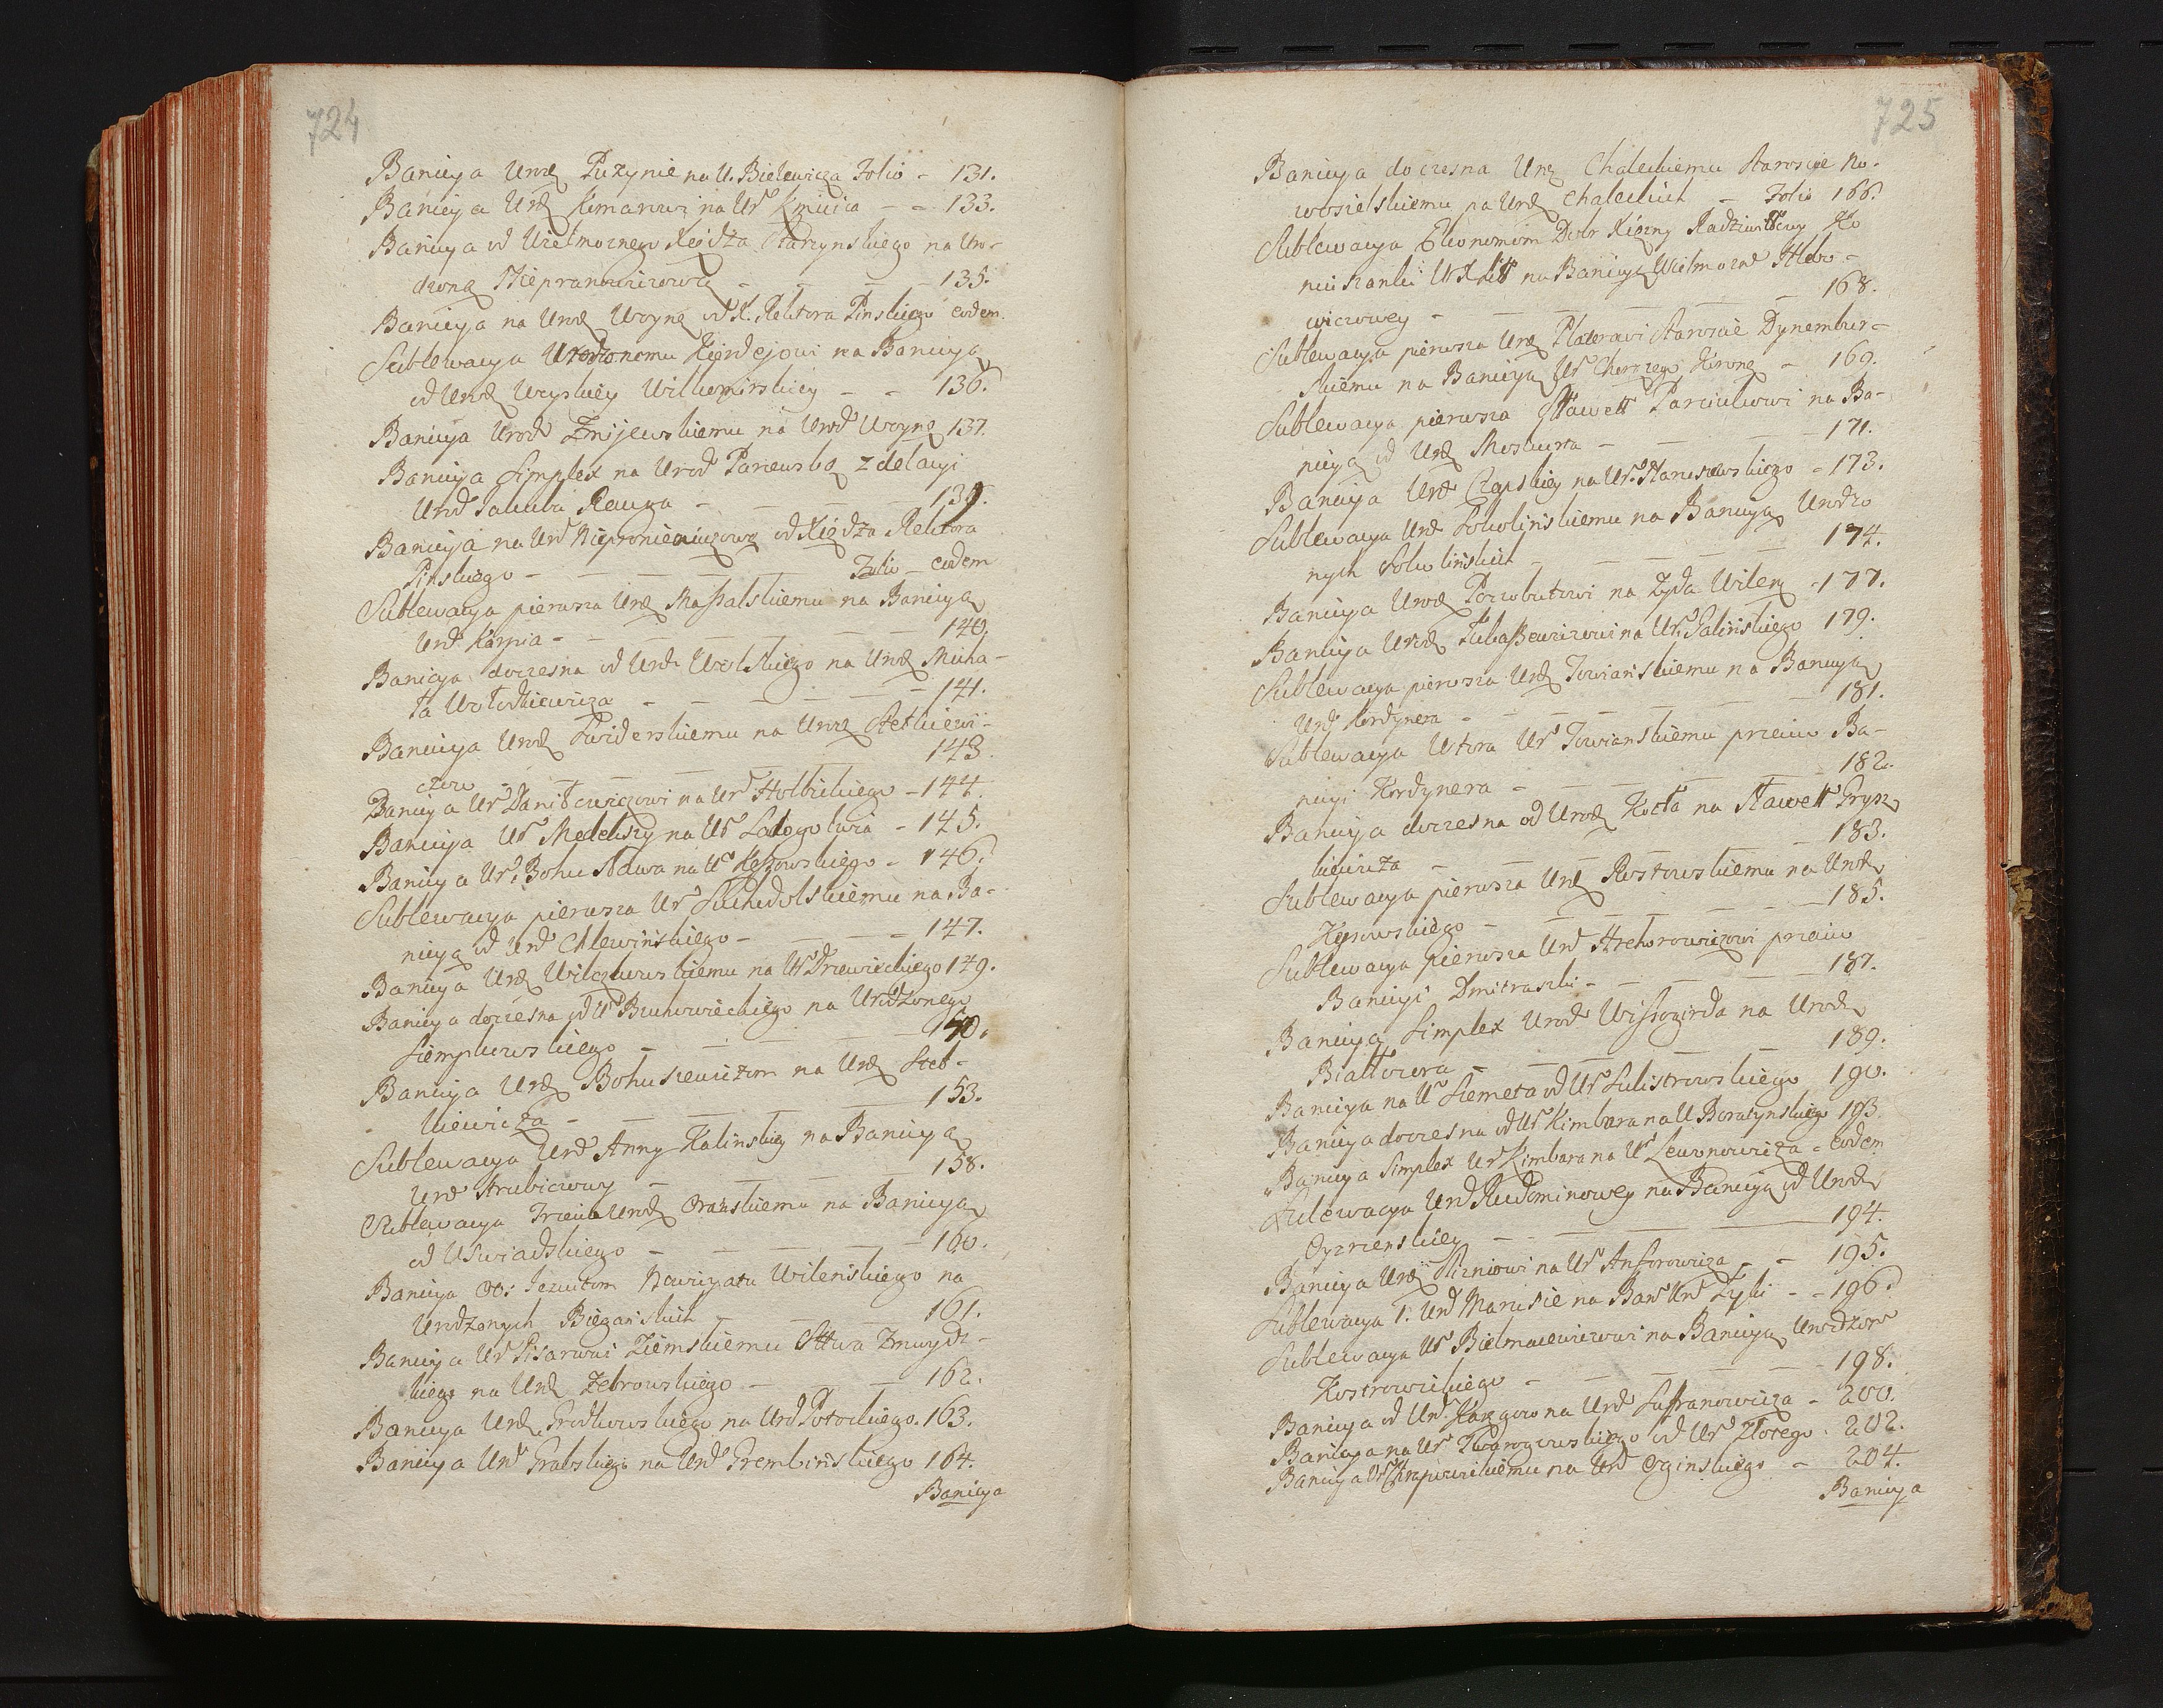 724
Banicya Urodz Puzynie na U. Bielewicza Folio - 131.
Banicya Urodz Kmarowi na Ur Kmicica - - 133.
Banicya od Wielmoznego Xiędza Starzynskiego na Uro-
dzoną - - - - 135.
Banicya na Urod Woynę od X. Rektora Pinskiego eodem.
Sublewacya Urodzonemu Kierdejowi na Banicyą
od Urodz Uzyskiey Wilkomirskiey - - 136.
Banicya Urod Zmijewskiemu na Urod Woynę 137.
Banicya Simplex na Urod Paniewską z delacyi
Urod Jakuba Rauza - - - 139.
Banicya na Ur od Xiędza Rektora
Pinskiego - - - Folio - eodem
Sublewacya pierwsza Urodz Massalskiemu na Banicyą
Urod Karpia - - - - - 140.
Banicya doczesna od Urod Wolskiego na Urodz Micha-
ła Wołodkiewicza - - - - - 141.
Banicya Urodz Swiderskiemu na Urodz Stetkiewi-
czow - - - - 143.
Banicya Ur Daniłewiczowi na Ur Hołbickiego - 144.
Banicya Ur Medekszy na Ur - 145.
Banicya Ur: Bohusława na U - 146.
Sublewacya pierwsza Ur Suchodolskiemu na Ba-
nicyą od Urod Chlewińskiego - - - 147.
Banicya Urodz Wilczkowskiemu na Ur Drzewieckiego 149.
Banicya doczesna od U Bruchowieckiego na Urodzonego
Siemplewskiego - - - - 150.
Banicya Urodz Bohuszewiczom na Urodz Stet-
kiewicza - - - - 153.
Sublewacya Urod Anny Kalinskiey na Banicyą
Urod Hrubiczowey - - - - 158.
Sublewacya Trzecia Urodz Orańskiemu na Banicyą
od U Swiadskiego - - - - 160.
Banicya OO: Jezuitom Nowicyatu Wileńskiego na
Urodzonych Biegańskich - - - 161.
Banicya Ur Pisarzowi Ziemskiemu Xttwa Zmuydz-
kiego na Urodz Zebrowskiego - - - 162.
Banicya Urodz Grodkowskiego na Urod Potockiego. 163.
Banicya Urod Grabskiego na Urod Grembińskiego 164.
Banicya
725
Banicya doczesna Urodz Chaleckiemu Staroscie No-
wosielskiemu na Urodz Chaleckich - Folio 166.
Sublewacya Ekonomom Dobr Xiężny Radziwiłłowy Ko
niuszanki W X Litt na Banicyą Wielmozne Hlebo-
wiczowey - - - - 168.
Sublewacya pierwsza Urodz Platerowi Staroscie Dynembur-
skiemu na Banicyą Ur Kirona - 169.
Sublewacya pierwsza Sławett na Ba-
nicyą od Urodz - - - 171.
Banicya Urod Czapskiey na Ur. Staniszewskiego - 173.
Sublewacya Urod Sokolińskiemu na Banicyą Urodzo
nych Sokolińskich - - - 174.
Banicya Urodz Poczobutowi na Żyda Wileń - 177.
Banicya Urodz Łukaszewiczowi na Ur. Salińskiego 179.
Sublewacya pierwsza Urodz Towiańskiemu na Banicyą
Urod Kordynera - - - - 181.
Sublewacya Wtora Ur Towianskiemu przeciw Ba-
nicyi Kordynera - - - 182.
Banicya doczesna od Urodz Kotła na Sławett Grysz
kiewicza - - - - 183.
Sublewacya pierwsza Urodz Rostowskiemu na Urodz
Kijnowskiego - - - - 185.
Sublewacya pierwsza Urod Hrehorowiczowi przeciw
Banicyi Dmitraszki - - - 187.
Banicya Simplex Urod Wissogirda na Urodz
Białłozora - - - - 189.
Banicya na U Siemeta od Ur Sulistrowskiego 190.
Banicya doczesna od Ur Kimbara na U Boratynskiego 193.
Banicya Simplex Ur Kimbara na Ur Lewonowicza - eodem
Sulewacya Urod Rudominowey na Banicyą od Urodz
- - - 194.
Banicya Urodz Pizniowi na Ur Anforowicza - - 195.
Sublewacya 1: Urod Marusie na Ban Urod Zyki - - 196.
Sublewacya Ur Bielmacewiczowi na Banicyą Urodzone
Kostrowickiego - - - - 198.
Banicya od Urod na Urod Safranowicza - 200.
Banicya na Ur Twarogowskiego od Ur Złotego . 202.
Banicya Ur Chrapowickiemu na Urod Oginskiego - 204.
Banicya